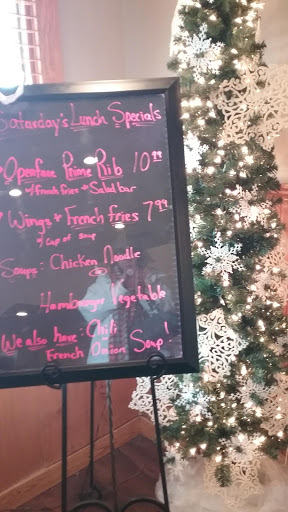 Saturday's Lunch Specials
Openface Prime Rib 10.99
w/ French fries + Salad bar
Wings + French fries 7.99
w/ cup of soup
Soups: Chicken Noodle
Hamburger Vegetable
We also have: Chili
French Onion Soup!